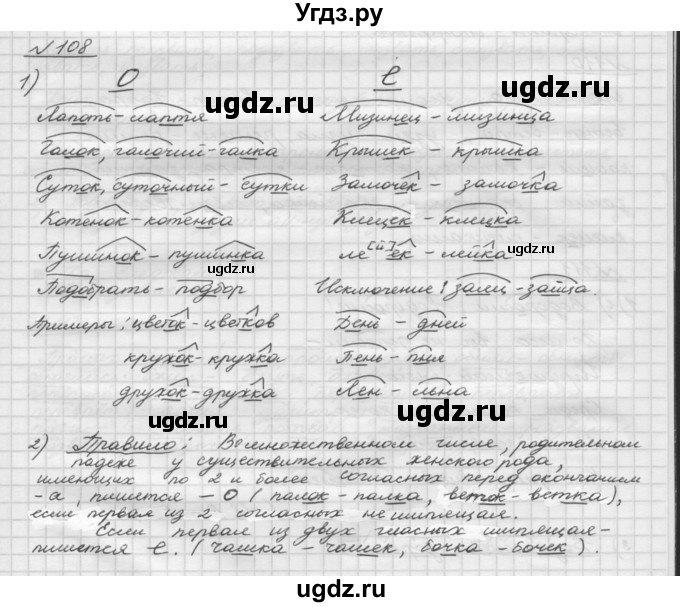 Угдз.ру
№108
1) О е
Лапоть - лаптя Мизинец - мизинца
Галок, галочий - галка Крышек - крышка
Суток, суточный - сутки Замочек - замочка
Котёнок - котёнка Клецек - клецка
Пушинок - пушинка ле[й]ек - лейка
Подобрать - подбор Исключение! заяц - зайца.
Примеры: цветок - цветков День - дней
кружок - кружка Пень - пня
дружок - дружка Лён - льна
2) Правило: Во множественном числе, родительном
падеже у существительных женского рода,
имеющих по 2 и более согласных перед окончанием
-а, пишется - О (палок - палка, веток - ветка),
если первая из 2 согласных не шипящая.
Если первая из двух гласных шипящая -
пишется е. (чашка - чашек, бочка - бочек).
ugdz.ru
ugdz.ru
ugdz.ru
ugdz.ru
ugdz.ru
ugdz.ru
ugdz.ru
ugdz.ru
ugdz.ru
ugdz.ru
ugdz.ru